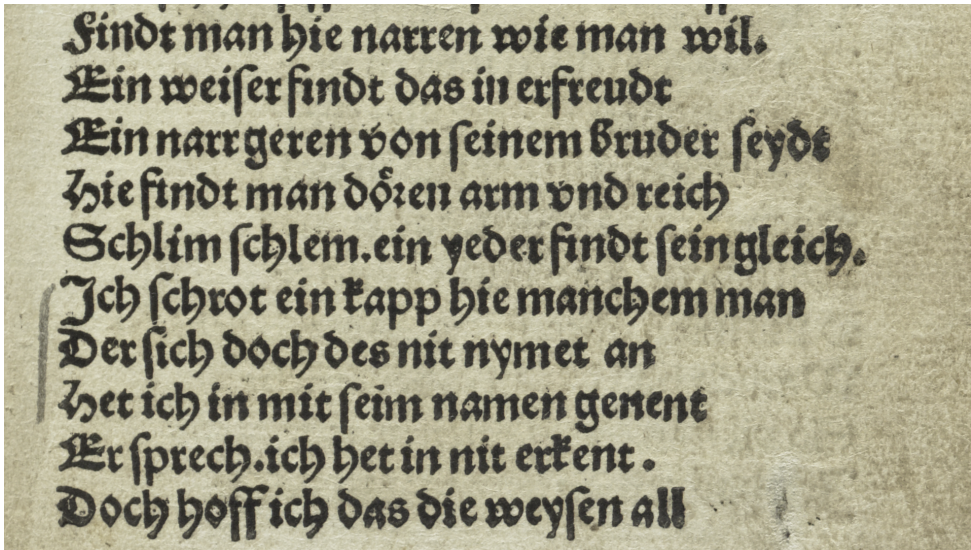 Findt man hie narren wie man wil.
Ein weiser findt das in erfreudt
Ein narr geren von seinem bruder seydt
Hie findt man dören arm vnd reich
Schlim schlem. ein yeder findt sein gleich.
Ich schrot ein kapp hie manchem man
Der sich doch des nit nymet an
Het ich in mit seim namen genent
Er sprech. ich het in nit erkent.
Doch hoff ich das die weysen all